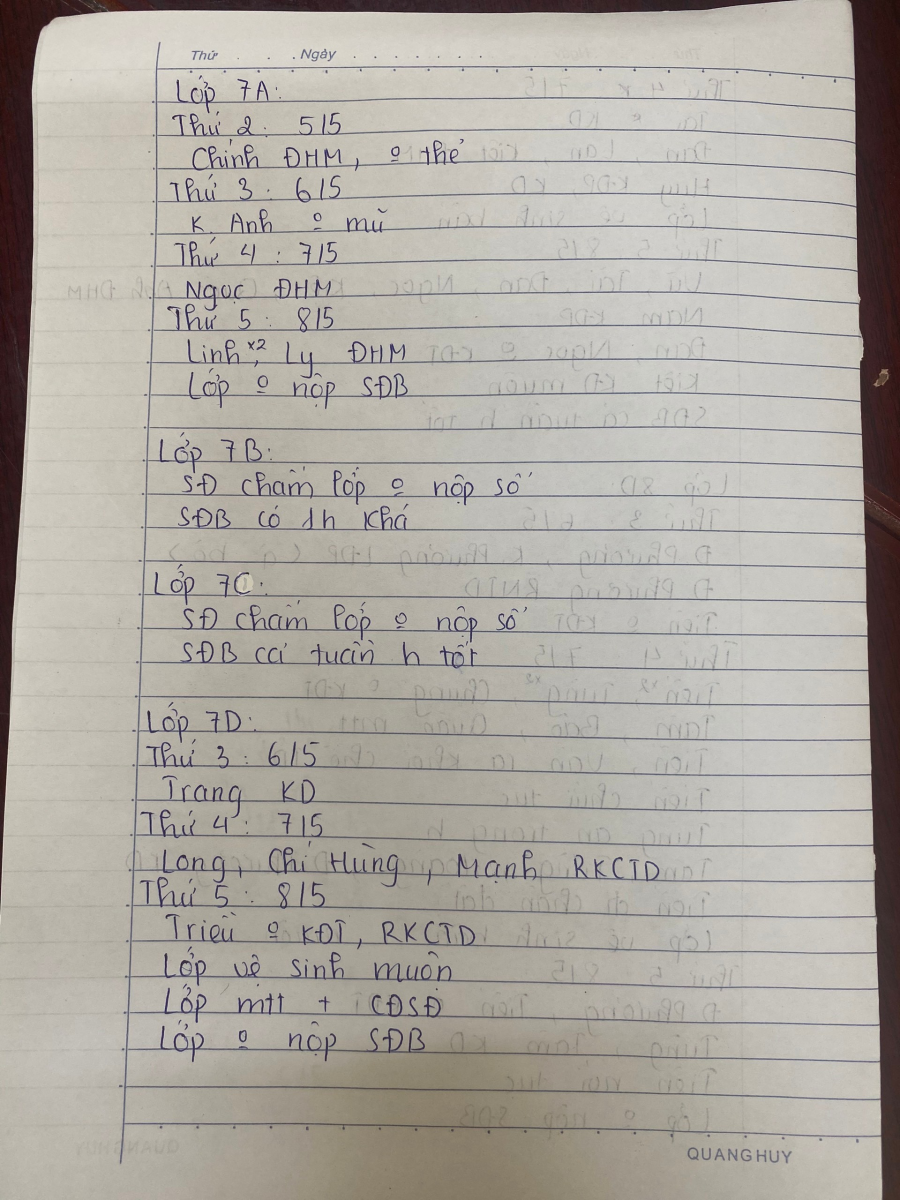 Thứ . . . Ngày . . . . . . .
Lớp 7A:
Thứ 2: 5/5
Chính ĐHM, o thẻ
Thứ 3: 6/5
K. Anh o mũ
Thứ 4: 7/5
Ngọc ĐHM
Thứ 5: 8/5
Linh x2, Ly ĐHM
Lớp o nộp SĐB
Lớp 7B:
SĐ chấm lớp o nộp sổ
SĐB có 1h Khá
Lớp 7C:
SĐ chấm lớp o nộp sổ
SĐB cả tuần h tốt
Lớp 7D:
Thứ 3: 6/5
Trang KD
Thứ 4: 7/5
Long, Chí Hùng, Mạnh RKCTD
Thứ 5: 8/5
Triều o KĐT, RKCTD
Lớp vệ sinh muộn
Lớp mtt + CĐSĐ
Lớp o nộp SĐB
QUANG HUY